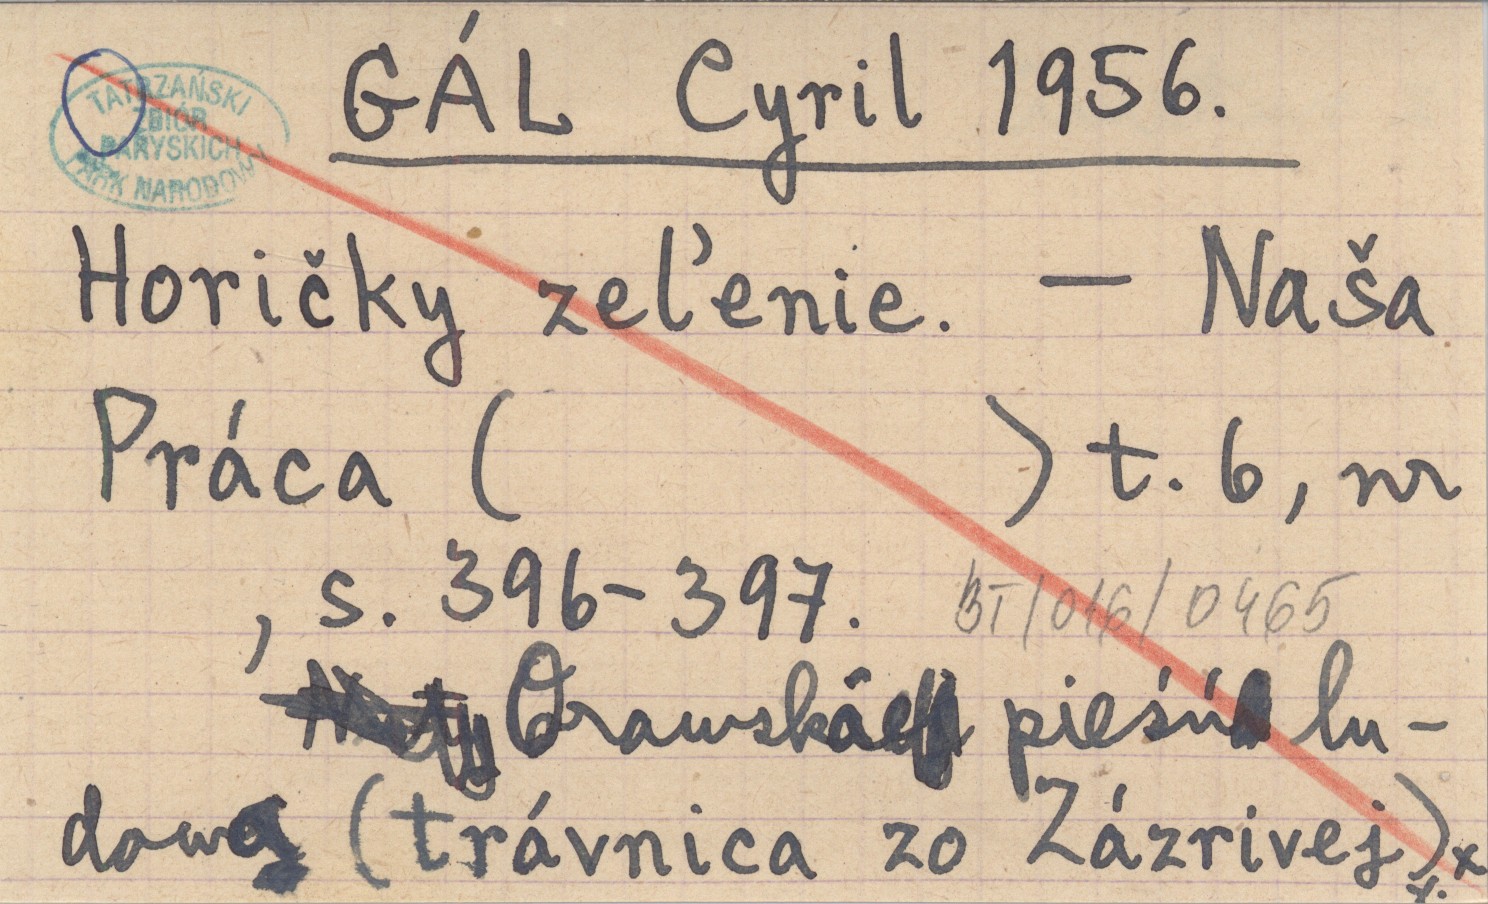 TATRZAŃSKI
ZBIÓR
PARYSKICH
PARK NARODOWY
GÁL Cyril 1956.
Horičky zeľenie. – Naša
Práca ( ) t. 6, nr
, s. 396-397.
BT/016/0465
Orawska pieśń lu-
dowa (trávnica zo Zázrivej)